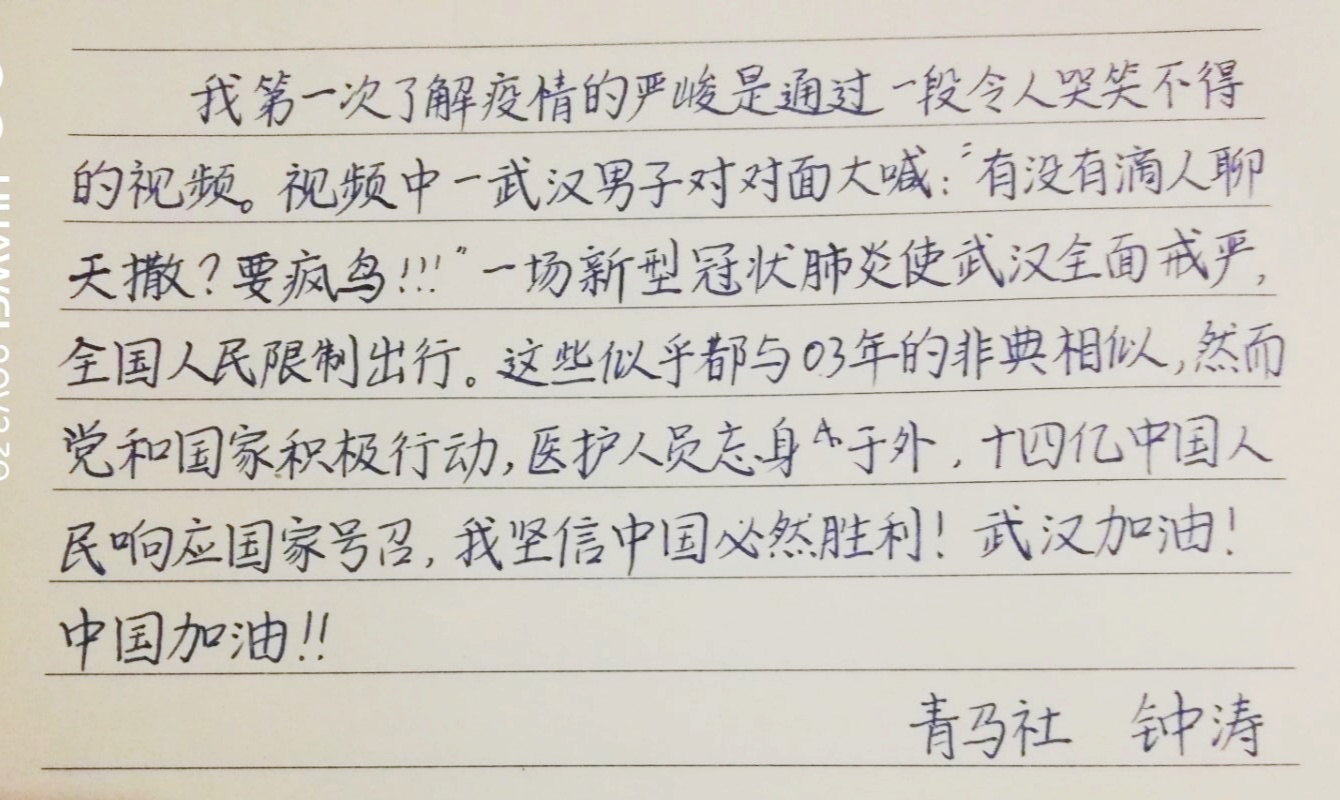 我第一次了解疫情的严峻是通过一段令人哭笑不得
的视频。视频中一武汉男子对对面大喊：“有没有滴人聊
天撒？要疯鸟!!!”一场新型冠状肺炎使武汉全面戒严，
全国人民限制出行。这些似乎都与03年的非典相似，然而
党和国家积极行动，医护人员忘身于外，十四亿中国人
民响应国家号召，我坚信中国必然胜利！武汉加油！
中国加油!!
青马社 钟涛